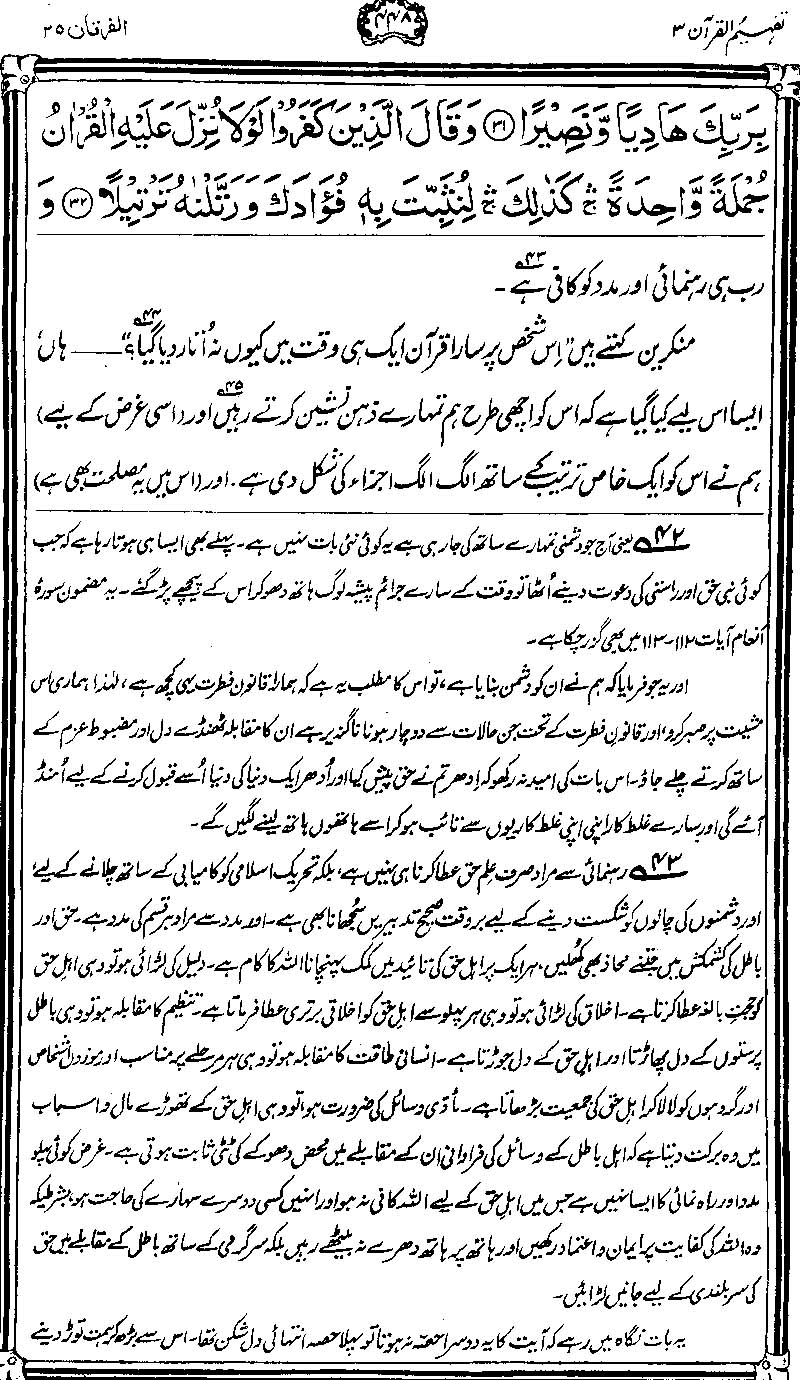 تفہیم القرآن ۳
۴۴۸
الفرقان ۲۵
بِرَبِّكَ هَادِيًا وَّنَصِيْرًا ﴿۳۱﴾ وَقَالَ الَّذِيْنَ كَفَرُوْا لَوْلَا نُزِّلَ عَلَيْهِ الْقُرْاٰنُ
جُمْلَةً وَّاحِدَةً ۛ كَذٰلِكَ ۛ لِنُثَبِّتَ بِهٖ فُؤَادَكَ وَرَتَّلْنٰهُ تَرْتِيْلًا ﴿۳۲﴾ وَ
رب ہی رہنمائی اور مدد کو کافی ہے۴۳۔
منکرین کہتے ہیں ”اِس شخص پر سارا قرآن ایک ہی وقت میں کیوں نہ اُتار دیا گیا؟“۴۴ ــــــ ہاں،
ایسا اس لیے کیا گیا ہے کہ اس کو اچھی طرح ہم تمہارے ذہن نشین کرتے رہیں۴۵ اور (اسی غرض کے لیے)
ہم نے اس کو ایک خاص ترتیب کے ساتھ الگ الگ اجزاء کی شکل دی ہے۔ اور (اس میں یہ مصلحت بھی ہے)
۴۲ یعنی آج جو دشمنی تمہارے ساتھ کی جا رہی ہے یہ کوئی نئی بات نہیں ہے۔ پہلے بھی ایسا ہی ہوتا رہا ہے کہ جب
کوئی نبی حق اور راستی کی دعوت دینے اُٹھا تو وقت کے سارے جرائم پیشہ لوگ ہاتھ دھو کر اس کے پیچھے پڑ گئے۔ یہ مضمون سورۂ
انعام آیات ۱۱۲-۱۱۳ میں بھی گزر چکا ہے۔
اور یہ جو فرمایا کہ ہم نے ان کو دشمن بنایا ہے، تو اس کا مطلب یہ ہے کہ ہمارا قانونِ فطرت یہی کچھ ہے، لہٰذا ہماری اس
مشیت پر صبر کرو، اور قانونِ فطرت کے تحت جن حالات سے دوچار ہونا ناگزیر ہے ان کا مقابلہ ٹھنڈے دل اور مضبوط عزم کے
ساتھ کرتے چلے جاؤ۔ اس بات کی امید نہ رکھو کہ اِدھر تم نے حق پیش کیا اور اُدھر ایک دنیا کی دنیا اُسے قبول کرنے کے لیے اُمنڈ
آئے گی اور سارے غلط کار اپنی اپنی غلط کاریوں سے تائب ہو کر اسے ہاتھوں ہاتھ لینے لگیں گے۔
۴۳ رہنمائی سے مراد صرف علمِ حق عطا کرنا ہی نہیں ہے، بلکہ تحریکِ اسلامی کو کامیابی کے ساتھ چلانے کے لیے،
اور دشمنوں کی چالوں کو شکست دینے کے لیے بروقت صحیح تدبیریں سُجھانا بھی ہے۔ اور مدد سے مراد ہر قسم کی مدد ہے۔ حق اور
باطل کی کشمکش میں جتنے محاذ بھی کھلیں، ہر ایک پر اہلِ حق کی تائید میں کمک پہنچانا اللہ کا کام ہے۔ دلیل کی لڑائی ہو تو وہی اہلِ حق
کو حجتِ بالغہ عطا کرتا ہے۔ اخلاق کی لڑائی ہو تو وہی ہر پہلو سے اہلِ حق کو اخلاقی برتری عطا فرماتا ہے۔ تنظیم کا مقابلہ ہو تو وہی باطل
پرستوں کے دل پھاڑتا اور اہلِ حق کے دل جوڑتا ہے۔ انسانی طاقت کا مقابلہ ہو تو وہی ہر مرحلے پر مناسب اور موزوں اشخاص
اور گروہوں کو لا لا کر اہلِ حق کی جمعیت بڑھاتا ہے۔ مادّی وسائل کی ضرورت ہو، تو وہی اہلِ حق کے تھوڑے مال و اسباب
میں وہ برکت دیتا ہے کہ اہلِ باطل کے وسائل کی فراوانی ان کے مقابلے میں محض دھوکے کی ٹٹی ثابت ہوتی ہے۔ غرض کوئی پہلو
مدد اور راہ نمائی کا ایسا نہیں ہے جس میں اہلِ حق کے لیے اللہ کافی نہ ہو اور انہیں کسی دوسرے سہارے کی حاجت ہو، بشرطیکہ
وہ اللہ کی کفایت پر ایمان و اعتماد رکھیں اور ہاتھ پر ہاتھ دھرے نہ بیٹھے رہیں بلکہ سرگرمی کے ساتھ باطل کے مقابلے میں حق
کی سربلندی کے لیے جانیں لڑائیں۔
یہ بات نگاہ میں رہے کہ آیت کا یہ دوسرا حصّہ نہ ہوتا تو پہلا حصہ انتہائی دل شکن تھا۔ اس سے بڑھ کر ہمت توڑ دینے